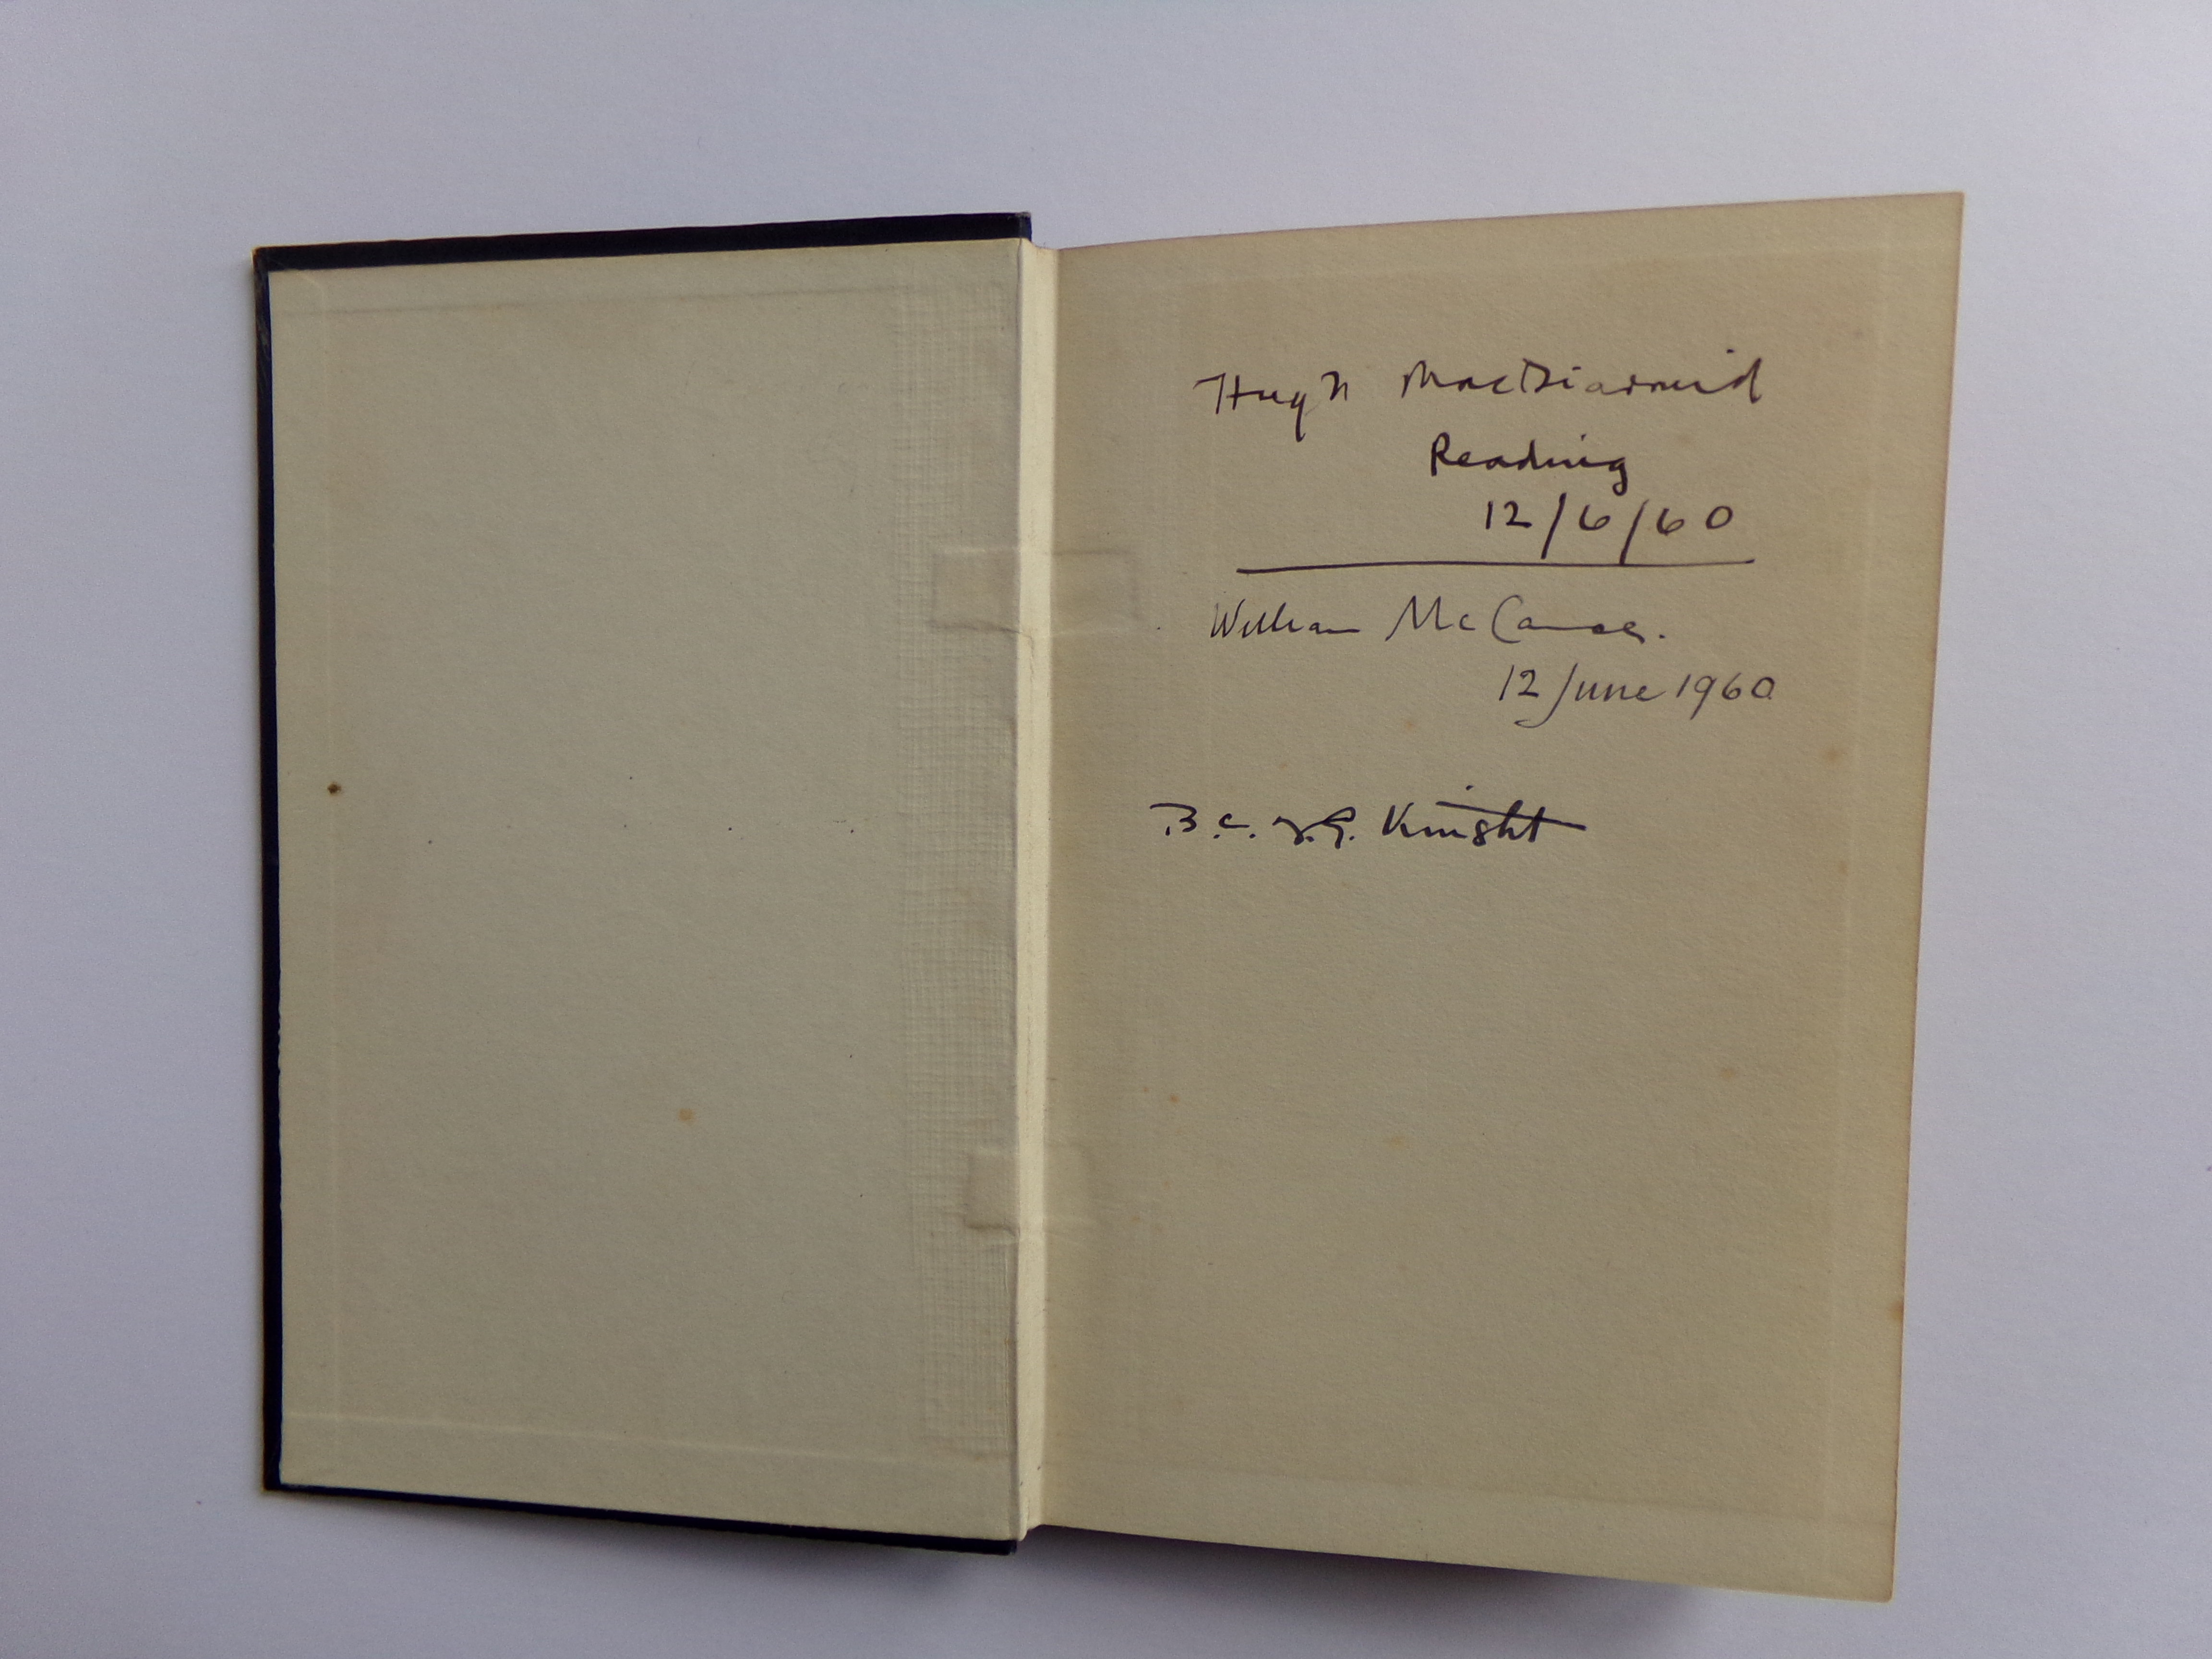 Hugh MacDiarmid
Reading
12/6/60
William McCance.
12 June 1960
B.C.J.G. Knight